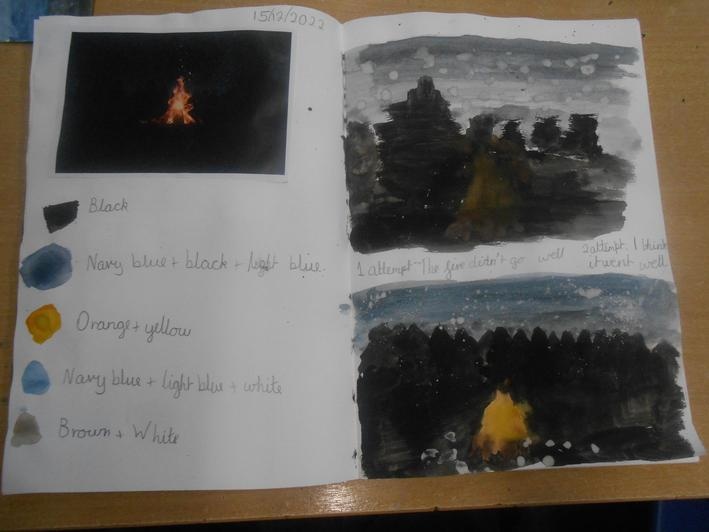 15/12/2022
Black
Navy blue + black + light blue.
Orange + yellow
Navy blue + light blue + white
Brown + White
1 attempt - The fire didn't go well
2 attempt. I think
it went well